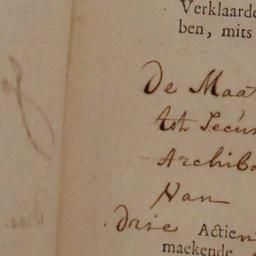 Verklaarde
ben, mits
De Maat
tot Secur
Archiba
Nan
drie Actien
maekende